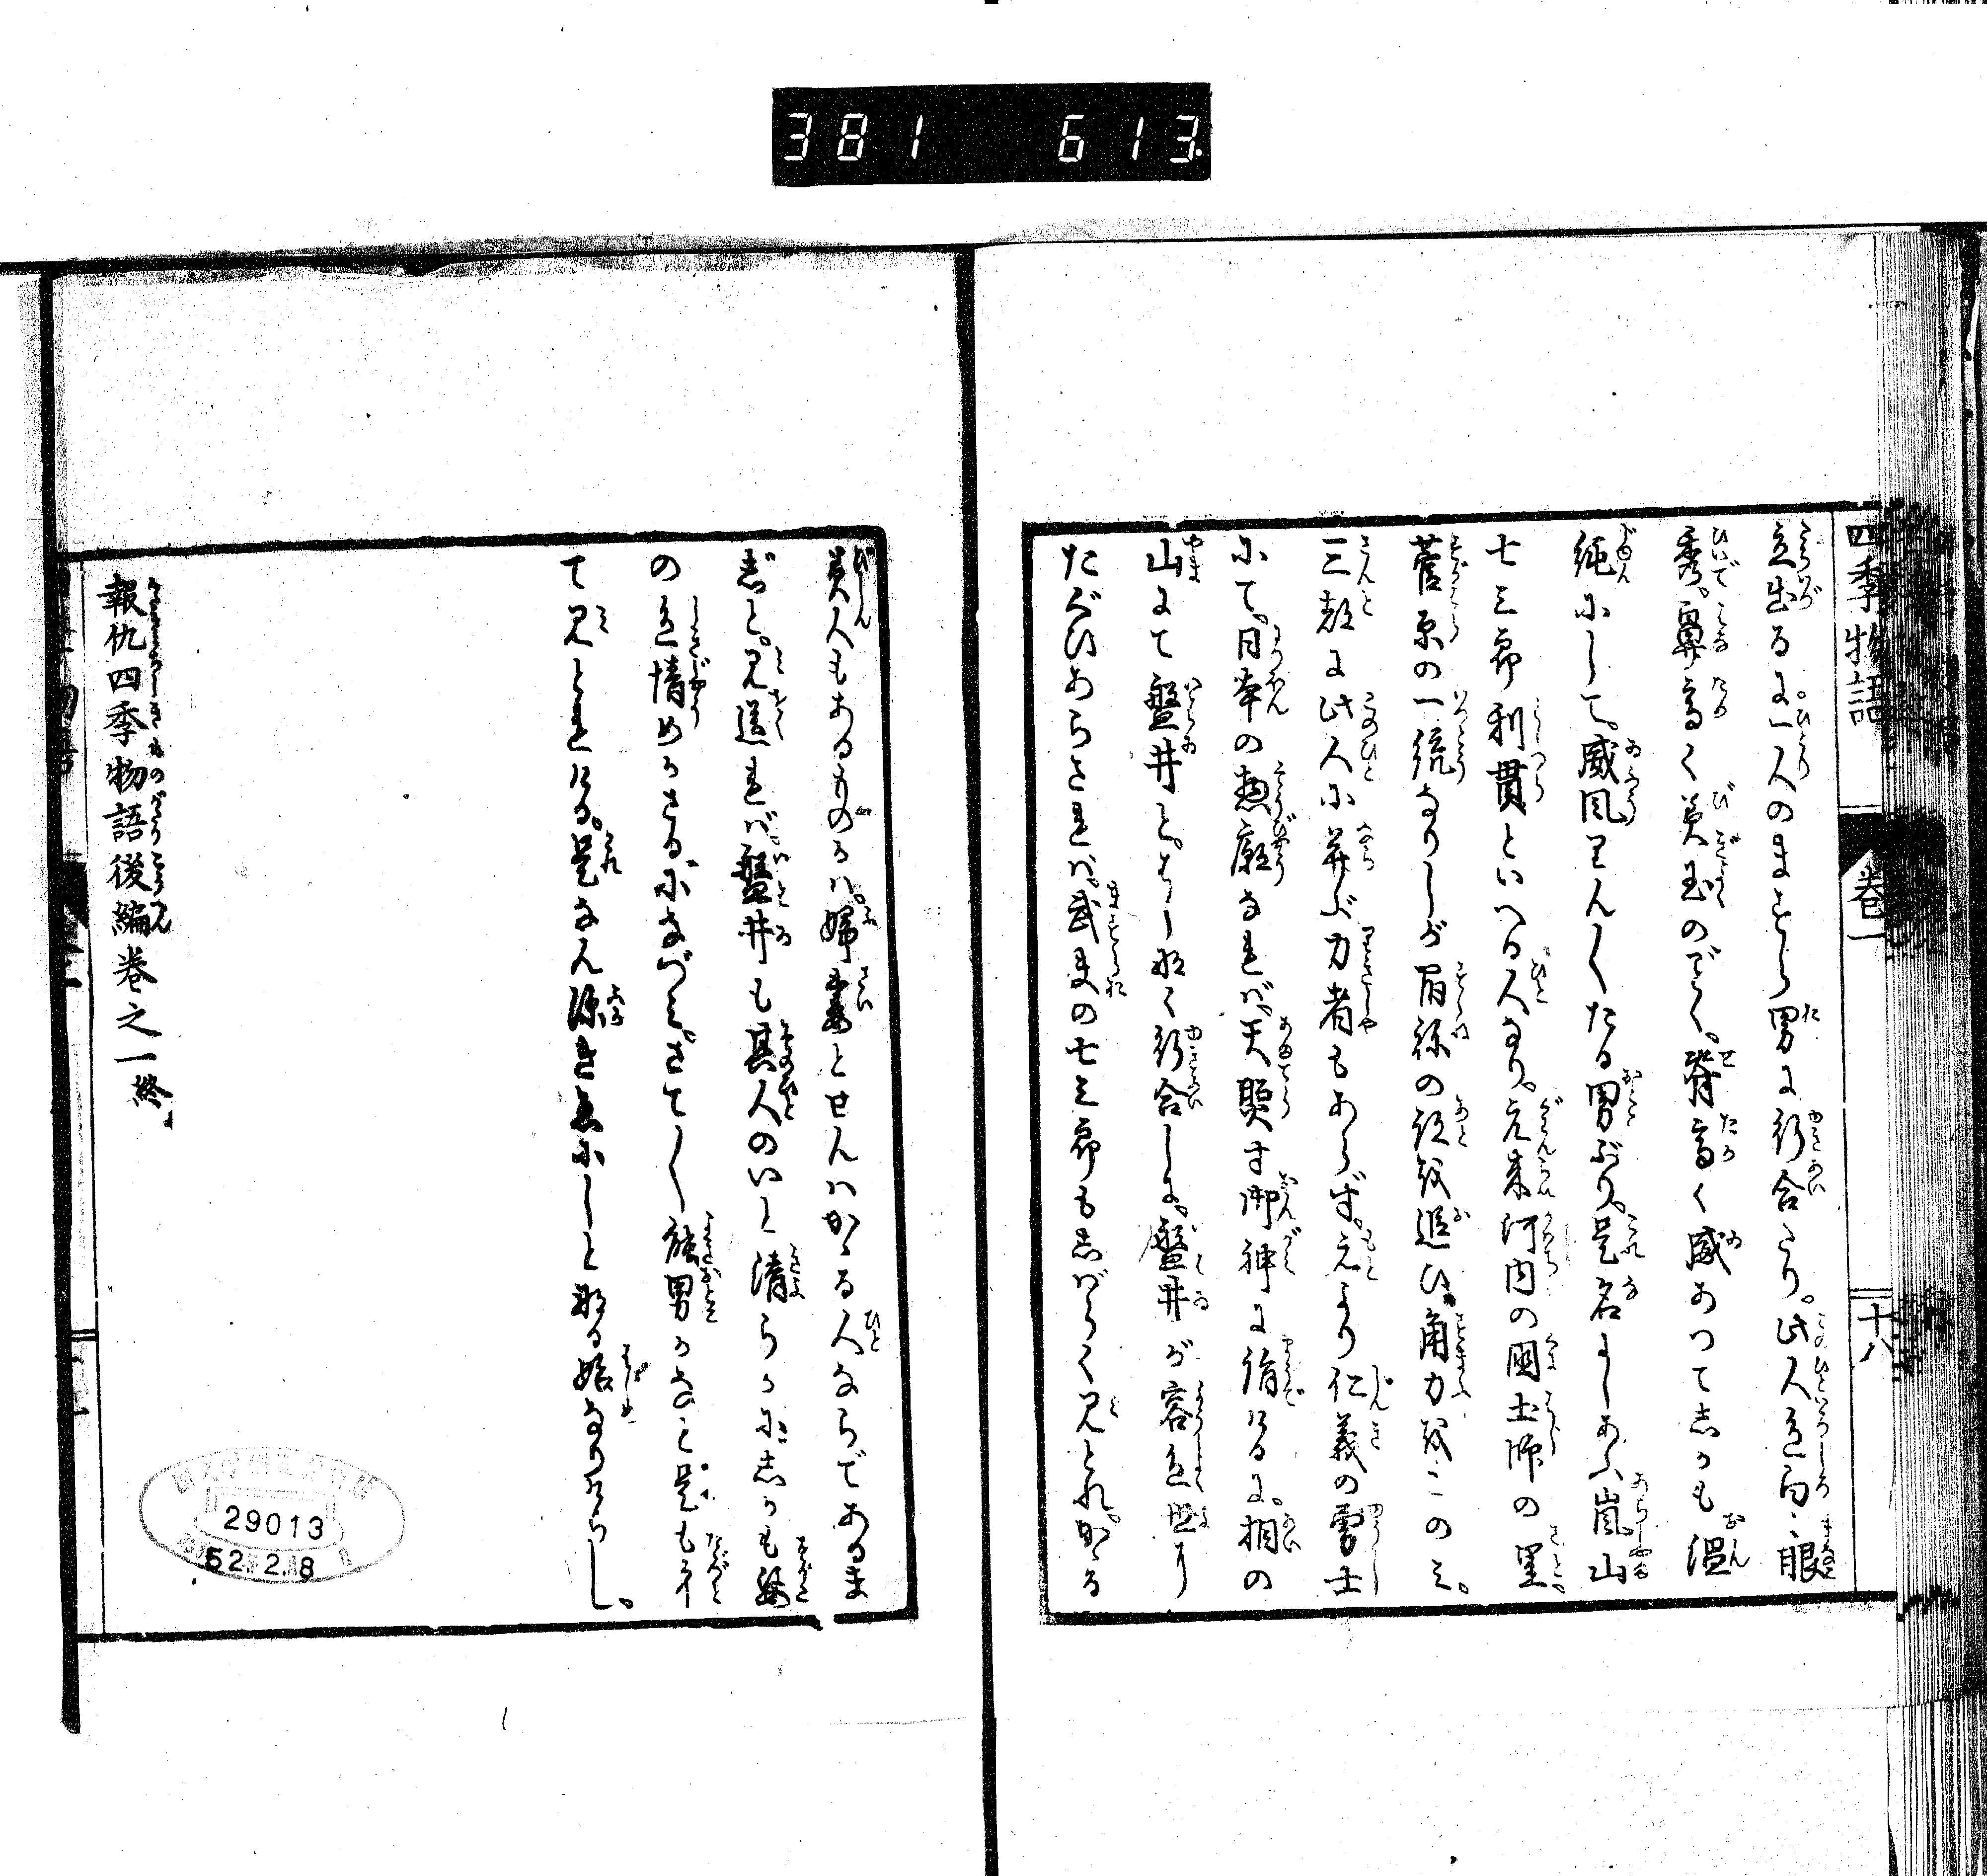 381 613
四季物語 巻一 十八
立出るに。一人のますら男に行合たり。此人色白く眼
秀。鼻高く美玉のごとく。脊高く威あつてしかも温
純にして。威風りん〳〵たる男ぶり。是名にしあふ嵐山
七三郎利貫といへる人なり。元来河内の国土師の里。
菅原の一統なりしが宿祢の跡を追ひ角力をこのミ。
三都に此人に并ぶ力者もあらず。元より仁義の勇士
にて。日本の惣廟なれば。天照す御神に詣けるに。相の
山にて盤井と。はしなく行合しに。盤井が容色世に
たぐひあらざれば。武夫の七三郎もしばらく見とれ。かゝる
美人もあるものかハ。婦妻とせんハかゝる人ならであるま
じと。見送れば。盤井も其人のいと清らかにしかも姿
の色情めかざるになづミ。さて〳〵能男かなと是も
て見とれける。是なん深き恋にしと成る始なりけらし。
報仇四季物語後編巻之一終
29013
52.2.8